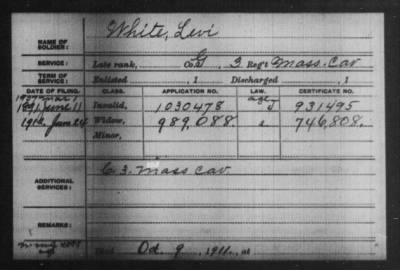 NAME OF SOLDIER: White, Levi
SERVICE: Late rank, Co. G, 3 Reg't Mass. Cav
TERM OF SERVICE: Enlisted , 1 Discharged , 1
DATE OF FILING. CLASS. APPLICATION NO. LAW. CERTIFICATE NO.
1891 June 11 Invalid, 1030478 931495
June 24 Widow, 989,088 746,808.
Minor,
ADDITIONAL SERVICES: G 3. Mass Cav
REMARKS:
Died Oct. 9, 1911, at